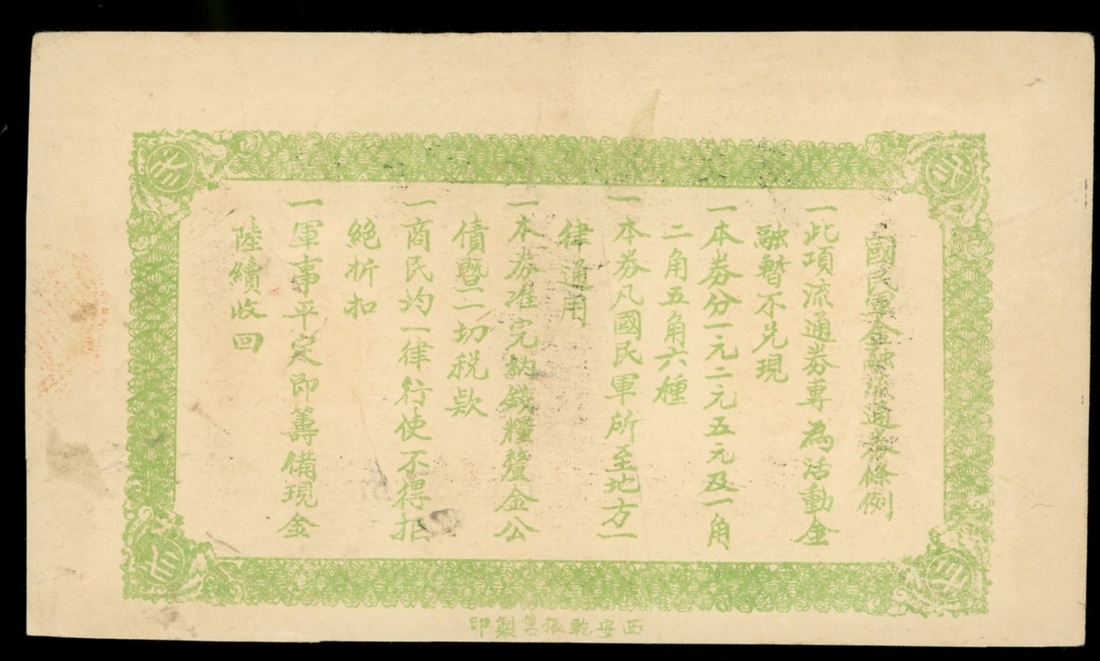 國民軍金融流通券條例
一此項流通券專為活動金
融暫不兌現
一本券分一元二元五元及一角
二角五角六種
一本券凡國民軍所至地方一
律通用
一本券准完納錢糧釐金公
債暨一切稅款
一商民均一律行使不得拒
絕折扣
一軍事平定即籌備現金
陸續收回
西安乾振巽製印